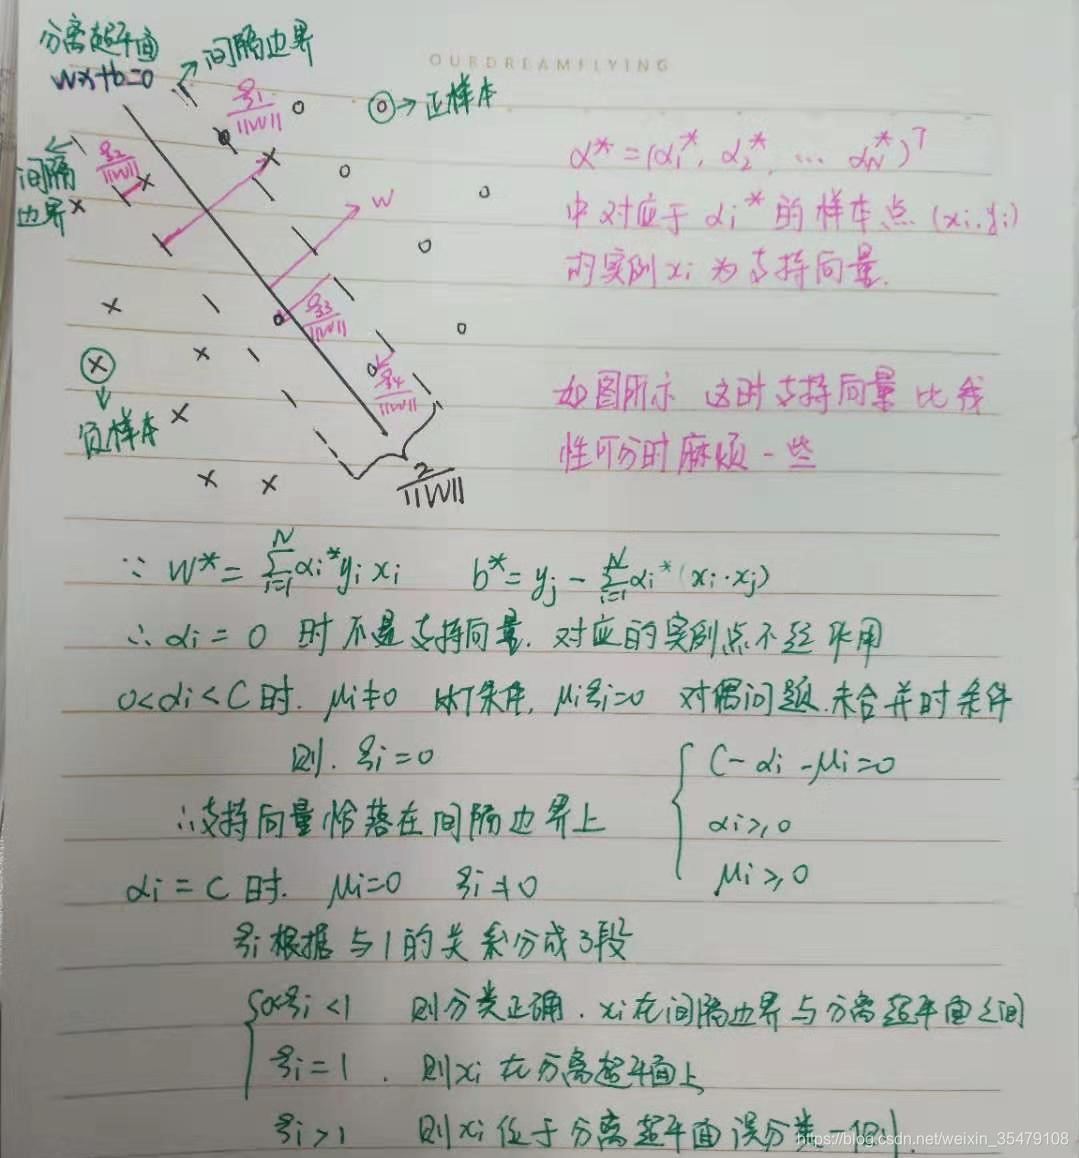 分离超平面
wx+b=0
间隔边界
OURDREAMFLYING
ξ₁/||W||
⊙→正样本
间隔边界
ξ₂/||W||
w
ξ₃/||W||
ξ₄/||W||
2/||W||
⊗
负样本
α* = (α₁*, α₂*, … α_N*)ᵀ
中对应于 αᵢ* 的样本点 (xᵢ, yᵢ)
的实例 xᵢ 为支持向量.
如图所示 这时支持向量比线
性可分时麻烦一些
∵ W* = Σ_{i=1}^{N} αᵢ* yᵢ xᵢ   b* = yⱼ − Σ_{i=1}^{N} αᵢ* (xᵢ·xⱼ)
∴ αᵢ = 0 时不是支持向量. 对应的实例点不起作用
0<αᵢ<C 时. μᵢ≠0 KKT条件, μᵢξᵢ=0 对偶问题.未合并时条件
则. ξᵢ=0
C−αᵢ−μᵢ=0
∴支持向量恰落在间隔边界上
αᵢ⩾0
μᵢ⩾0
αᵢ=C 时. μᵢ=0 ξᵢ≠0
ξᵢ根据与1的关系分成3段
0<ξᵢ<1 则分类正确. xᵢ在间隔边界与分离超平面之间
ξᵢ=1. 则xᵢ在分离超平面上
ξᵢ>1 则xᵢ位于分离超平面误分类一侧.
https://blog.csdn.net/weixin_35479108